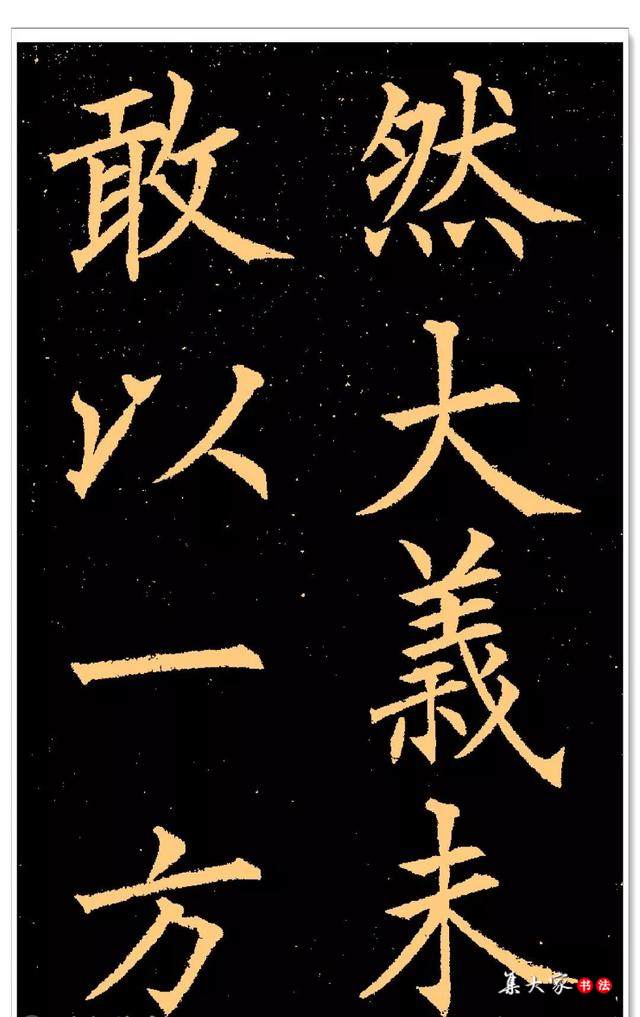 然大義未
敢以一方
集大家书法